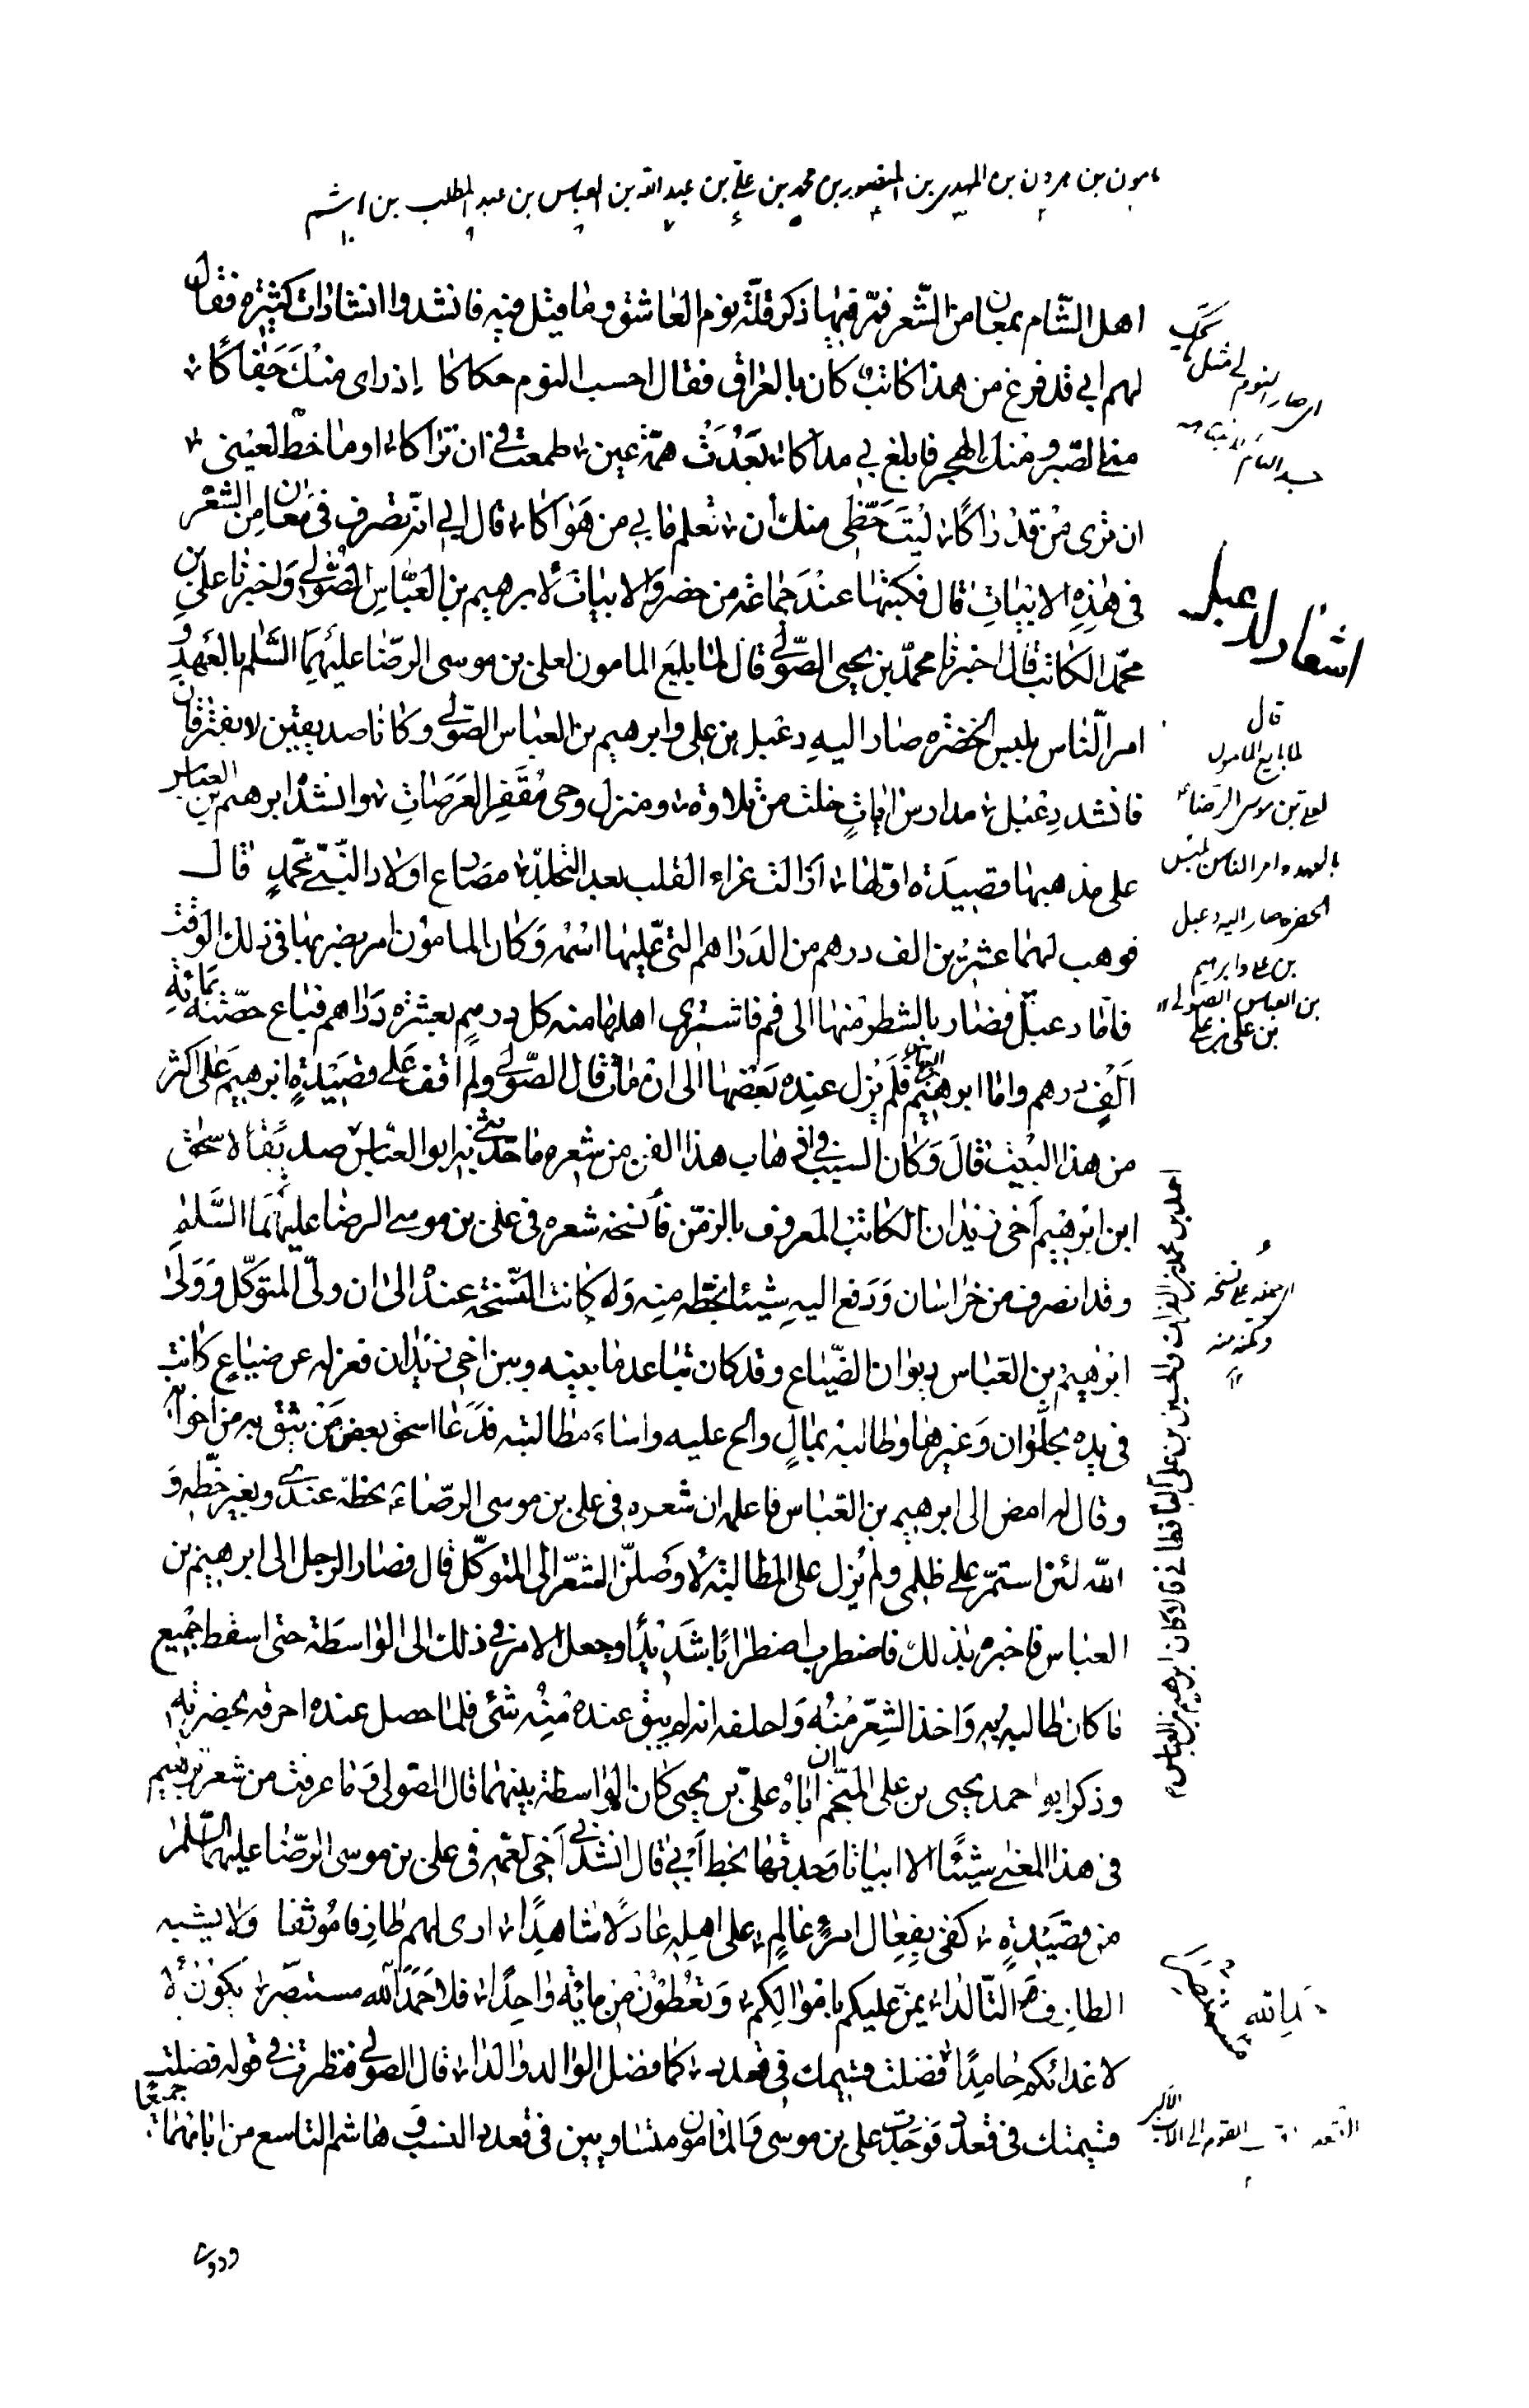 مامون بن هرون بن المهدى بن المنصور بن محمد بن على بن عبد الله بن العباس بن عبد المطلب بن هاشم
اهل الشام بمعان من الشعر فمر فيها ذكر قلة نوم العاشق وما قيل فيه فانشدوا انشادات كثيرة فقال
لهم ابي قد فرغ من هذا كاتب كان بالعراق فقال احسب النوم حكاكا إذ راى منك جفاكا
منى الصبر ومنك الهجر فابلغ بي مداكا بَعُدَت همة عين طمعت في ان تراكا او ما خط لعينى
ان ترى من قد راكا ليت حظى منك ان تعلم ما بي من هواكا قال ابي انه تصرف فى معان من الشعر
فى هذه الابيات قال فكتبها عند جماعة من حضر والابيات لابرهيم بن العباس الصولي واخبرنا على بن
محمد الكاتب قال اخبرنا محمد بن يحيى الصولي قال لما بايع المامون لعلى بن موسى الرضا عليهما السلم بالعهد و
امر الناس بلبس الخضرة صار اليه دعبل بن على وابرهيم بن العباس الصولي وكانا صديقين لا يفترقان
فانشد دعبل مدارس ايات خلت من تلاوة ومنزل وحى مقفر العرصات وانشد ابرهيم بن العباس
على مذهبها قصيدة اولها ازالت عزاء القلب بعد التجلد مصارع اولاد النبي محمد قال
فوهب لهما عشرين الف درهم من الدراهم التى عليها اسمه وكان المامون امر بضربها فى ذلك الوقت
فاما دعبل فصار بالشطر منها الى قم فاشترى اهلها منه كل درهم بعشرة دراهم فباع حصته بمائة
الف درهم واما ابرهيم فلم يزل عنده بعضها الى ان مات قال الصولي ولم اقف على قصيدة ابرهيم على اكثر
من هذا البيت قال وكان السبب في ذهاب هذا الفن من شعره ما حدثني به ابو العباس صديقا لاسحق
ابن ابرهيم اخى زيدان الكاتب المعروف بالزمن فانسخه شعره فى على بن موسى الرضا عليهما السلم
وقد انصرف من خراسان ودفع اليه شيئا بخطه منه وكانت النسخة عنده الى ان ولى المتوكل وولى
ابرهيم بن العباس ديوان الضياع وقد كان تباعد ما بينه وبين اخى زيدان فعزله عن ضياع كانت
فى يده بحلوان وغيرها وطالبه بمال والح عليه واساء مطالبته فدعا اسحق بعض من يثق به من اخوانه
وقال له امض الى ابرهيم بن العباس فاعلمه ان شعره فى على بن موسى الرضا بخطه عندى وبغير خطه و
الله لئن استمر على ظلمى ولم يزل عنى المطالبة لاوصلن الشعر الى المتوكل قال فصار الرجل الى ابرهيم بن
العباس فاخبره بذلك فاضطرب اضطرابا شديدا وجعل الامر في ذلك الى الواسطة حتى اسقط جميع
ما كان طالبه به واخذ الشعر منه واحلفه انه لم يبق عنده منه شئ فلما حصل عنده احرقه بحضرته
وذكر ابو احمد يحيى بن على المنجم ان اباه على بن يحيى كان الواسطة بينهما قال الصولى وما عرفت من شعر ابرهيم
فى هذا المعنى شيئا الا ابياتا وجدتها بخط ابي قال انشدني اخى لعمه فى على بن موسى الرضا عليهما السلم
من قصيدة كفى بفعال امرء عالم على اهله عادلا شاهدا ارى لهم طارفا مونقا ولا يشبه
الطارف التالدا يمن عليكم باموالكم وتعطون من مائة واحدا فلا حمد الله مستبصر يكون
لاعدائكم حامدا فضلت قسيمك في قعدد كما فضل الوالد والدا قال الصولي فنظرت في قوله فضلت
قسيمك فى قعدد فوجدت على بن موسى والمامون متساويين فى قعدد النسب وهاشم التاسع من ابائهما جميعا
ودوت
اشعار لدعبل
قال
لما بايع المامون
لعلى بن موسى الرضا
بالعهد وامر الناس بلبس
الخضره صار اليه دعبل
بن على وابرهيم
بن العباس الصولى
احمد بن محمد بن الفرات والحسين بن على الباقطانى قالا كان ابرهيم بن العباس